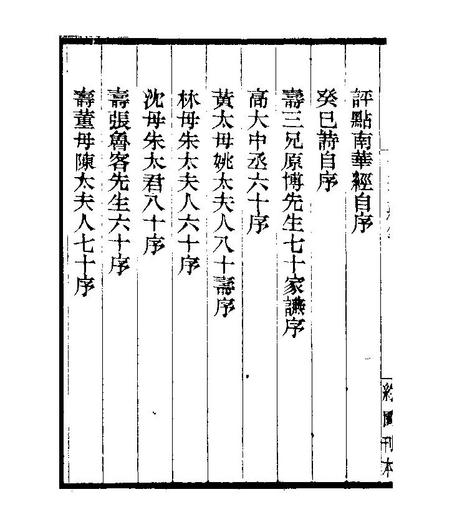 評點南華經自序
癸巳詩自序
壽三兄原博先生七十家讌序
高大中丞六十序
黃太母姚太夫人八十壽序
林母朱太夫人六十序
沈母朱太君八十序
壽張魯客先生六十序
壽董母陳太夫人七十序
約園刊本